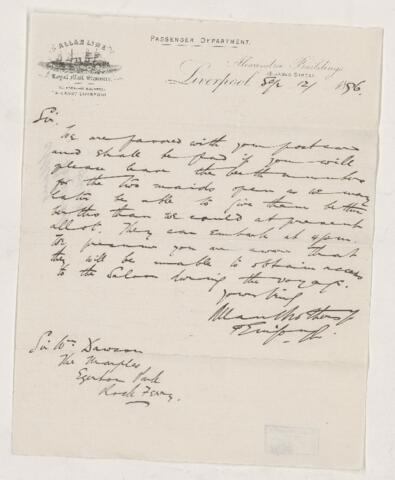 ALLAN LINE
Royal Mail Steamers
PASSENGER DEPARTMENT.
Alexandra Buildings
19 JAMES STREET
Liverpool 12/ 1886.
Sir,
We are favored with your postcard
and shall be glad if you will
please leave the berth numbers
for the two maids open as we may
later be able to give them better
berths than we could at present
allot. They can embark at 4pm.
We presume you are aware that
they will be unable to obtain access
to the Saloon during the voyage.
Yours truly
Allan Brothers
Sir Wm Dawson
The Maples
Egerton Park
Rock Ferry.